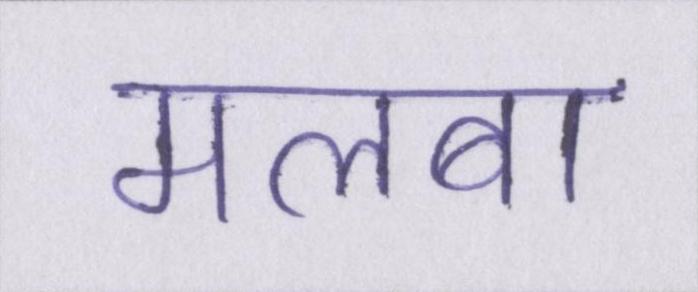 मलबा